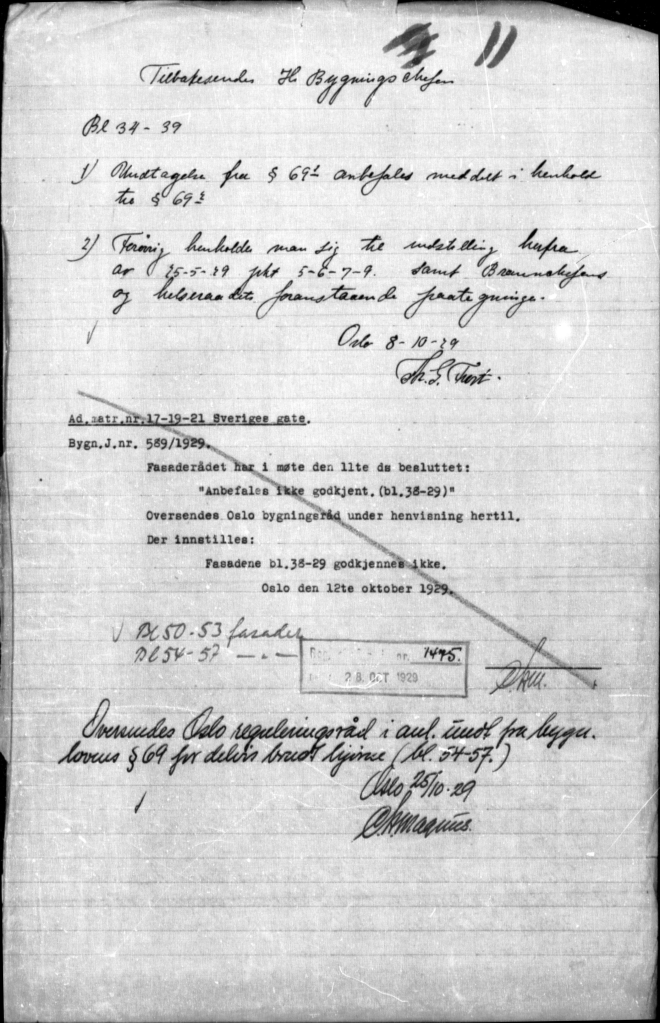 11
Tilbakesendes Hr Bygningschefen
Bl 34-39
1) Undtagelse fra § 69¹ anbefales meddelt i henhold
til § 69²
2) Forøvrig henholder man sig til indstilling herfra
av 25-5-29 pkt 5-6-7-9. samt Brannchefens
og helseraadets foranstaaende paategninger.
Oslo 8-10-29
Ad.matr.nr.17-19-21 Sveriges gate.
Bygn.J.nr. 589/1929.
Fasaderådet har i møte den 11te ds besluttet:
"Anbefales ikke godkjent.(bl.38-29)"
Oversendes Oslo bygningsråd under henvisning hertil.
Der innstilles:
Fasadene bl.38-29 godkjennes ikke.
Oslo den 12te oktober 1929.
Bl 50-53 fasader
Bl 54-57 — „ —
nr. 1475.
28 OCT 1929
Oversendes Oslo reguleringsråd i anl. undt fra bygn.
lovens § 69 for delvis brudt hjørne (bl. 54-57.)
Oslo 25/10-29